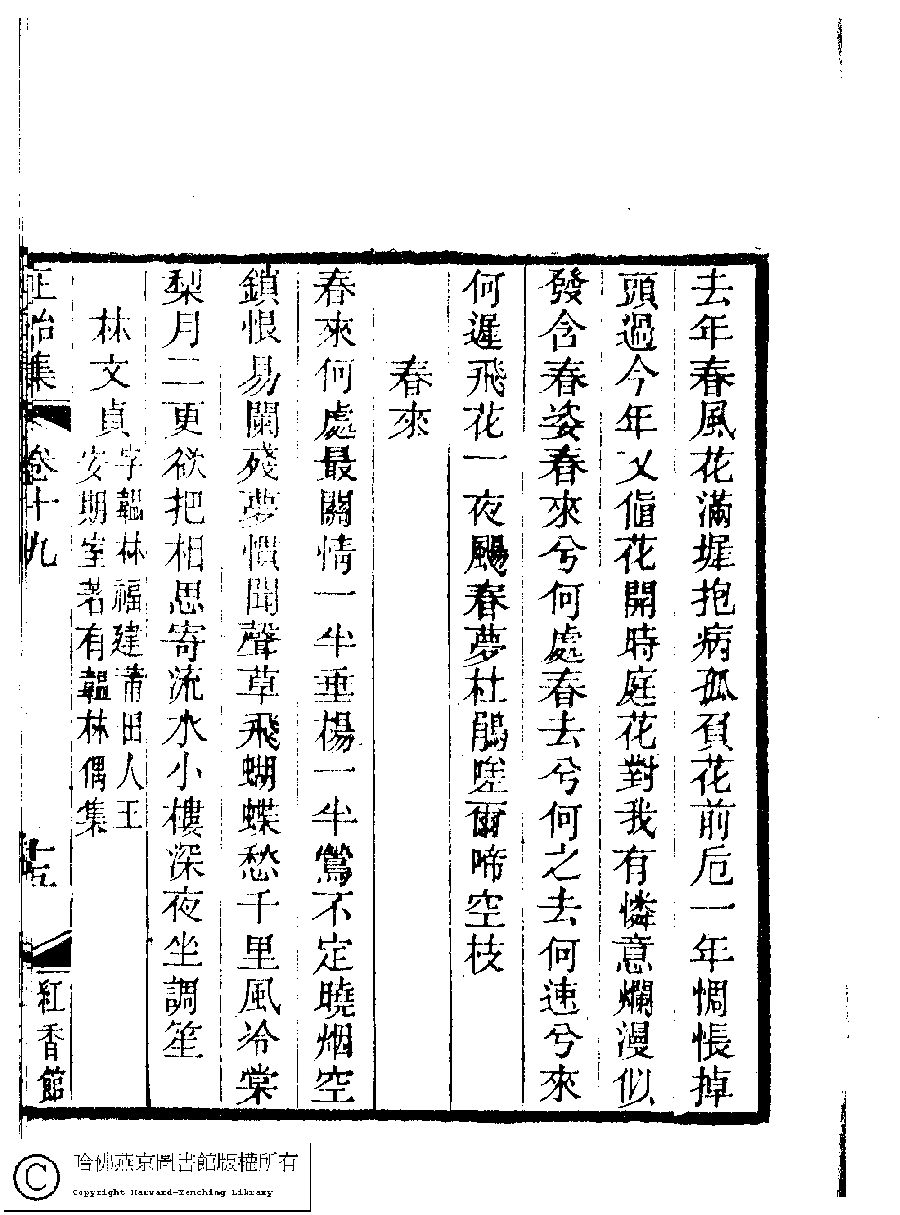 去年春風花滿墀抱病孤負花前卮一年惆悵掉
頭過今年又值花開時庭花對我有憐意爛漫似
發含春姿春來兮何處春去兮何之去何速兮來
何遲飛花一夜颺春夢杜鵑嗟爾啼空枝
春來
春來何處最關情一半垂楊一半鶯不定曉烟空
鎖恨易闌殘夢慣聞聲草飛蝴蝶愁千里風冷棠
梨月二更欲把相思寄流水小樓深夜坐調笙
林文貞
字韞林福建莆田人王
安期室著有韞林偶集
正始集
卷十九
十五
紅香館
哈佛燕京圖書館版權所有
Copyright Harvard-Yenching Library